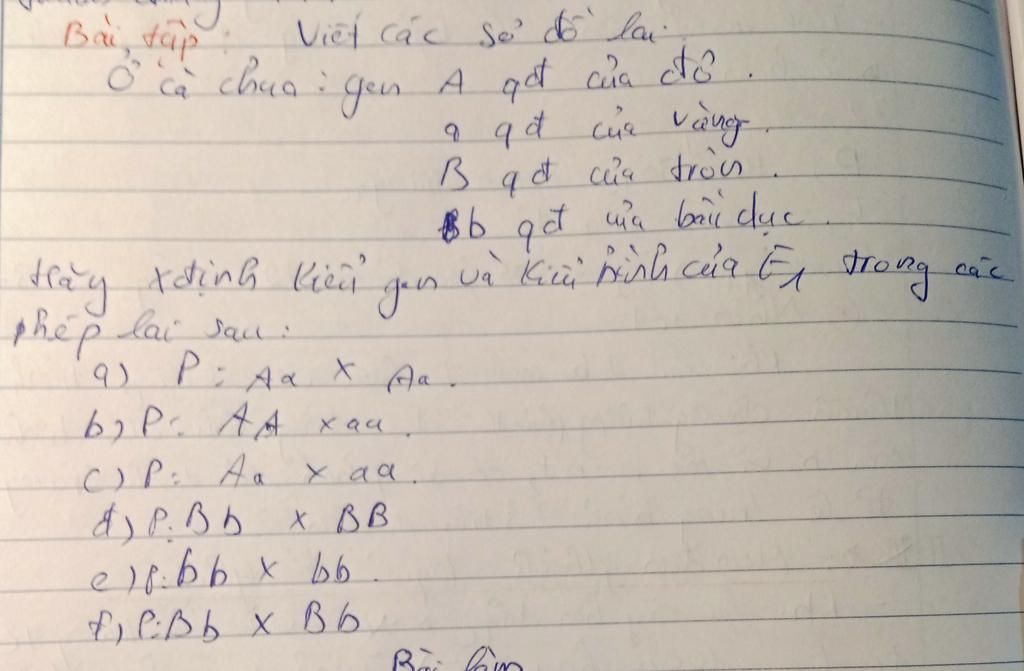 Bài tập: Viết các sơ đồ lai.
Ở cà chua: gen A qđ của đỏ.
a qđ của vàng.
B qđ của tròn.
b qđ của bầu dục.
Hãy xđịnh kiểu gen và kiểu hình của F1 trong các
phép lai sau:
a) P: Aa x Aa.
b) P: AA x aa.
c) P: Aa x aa.
d) P: Bb x BB
e) P: bb x bb.
f) P: Bb x Bb
Bài làm